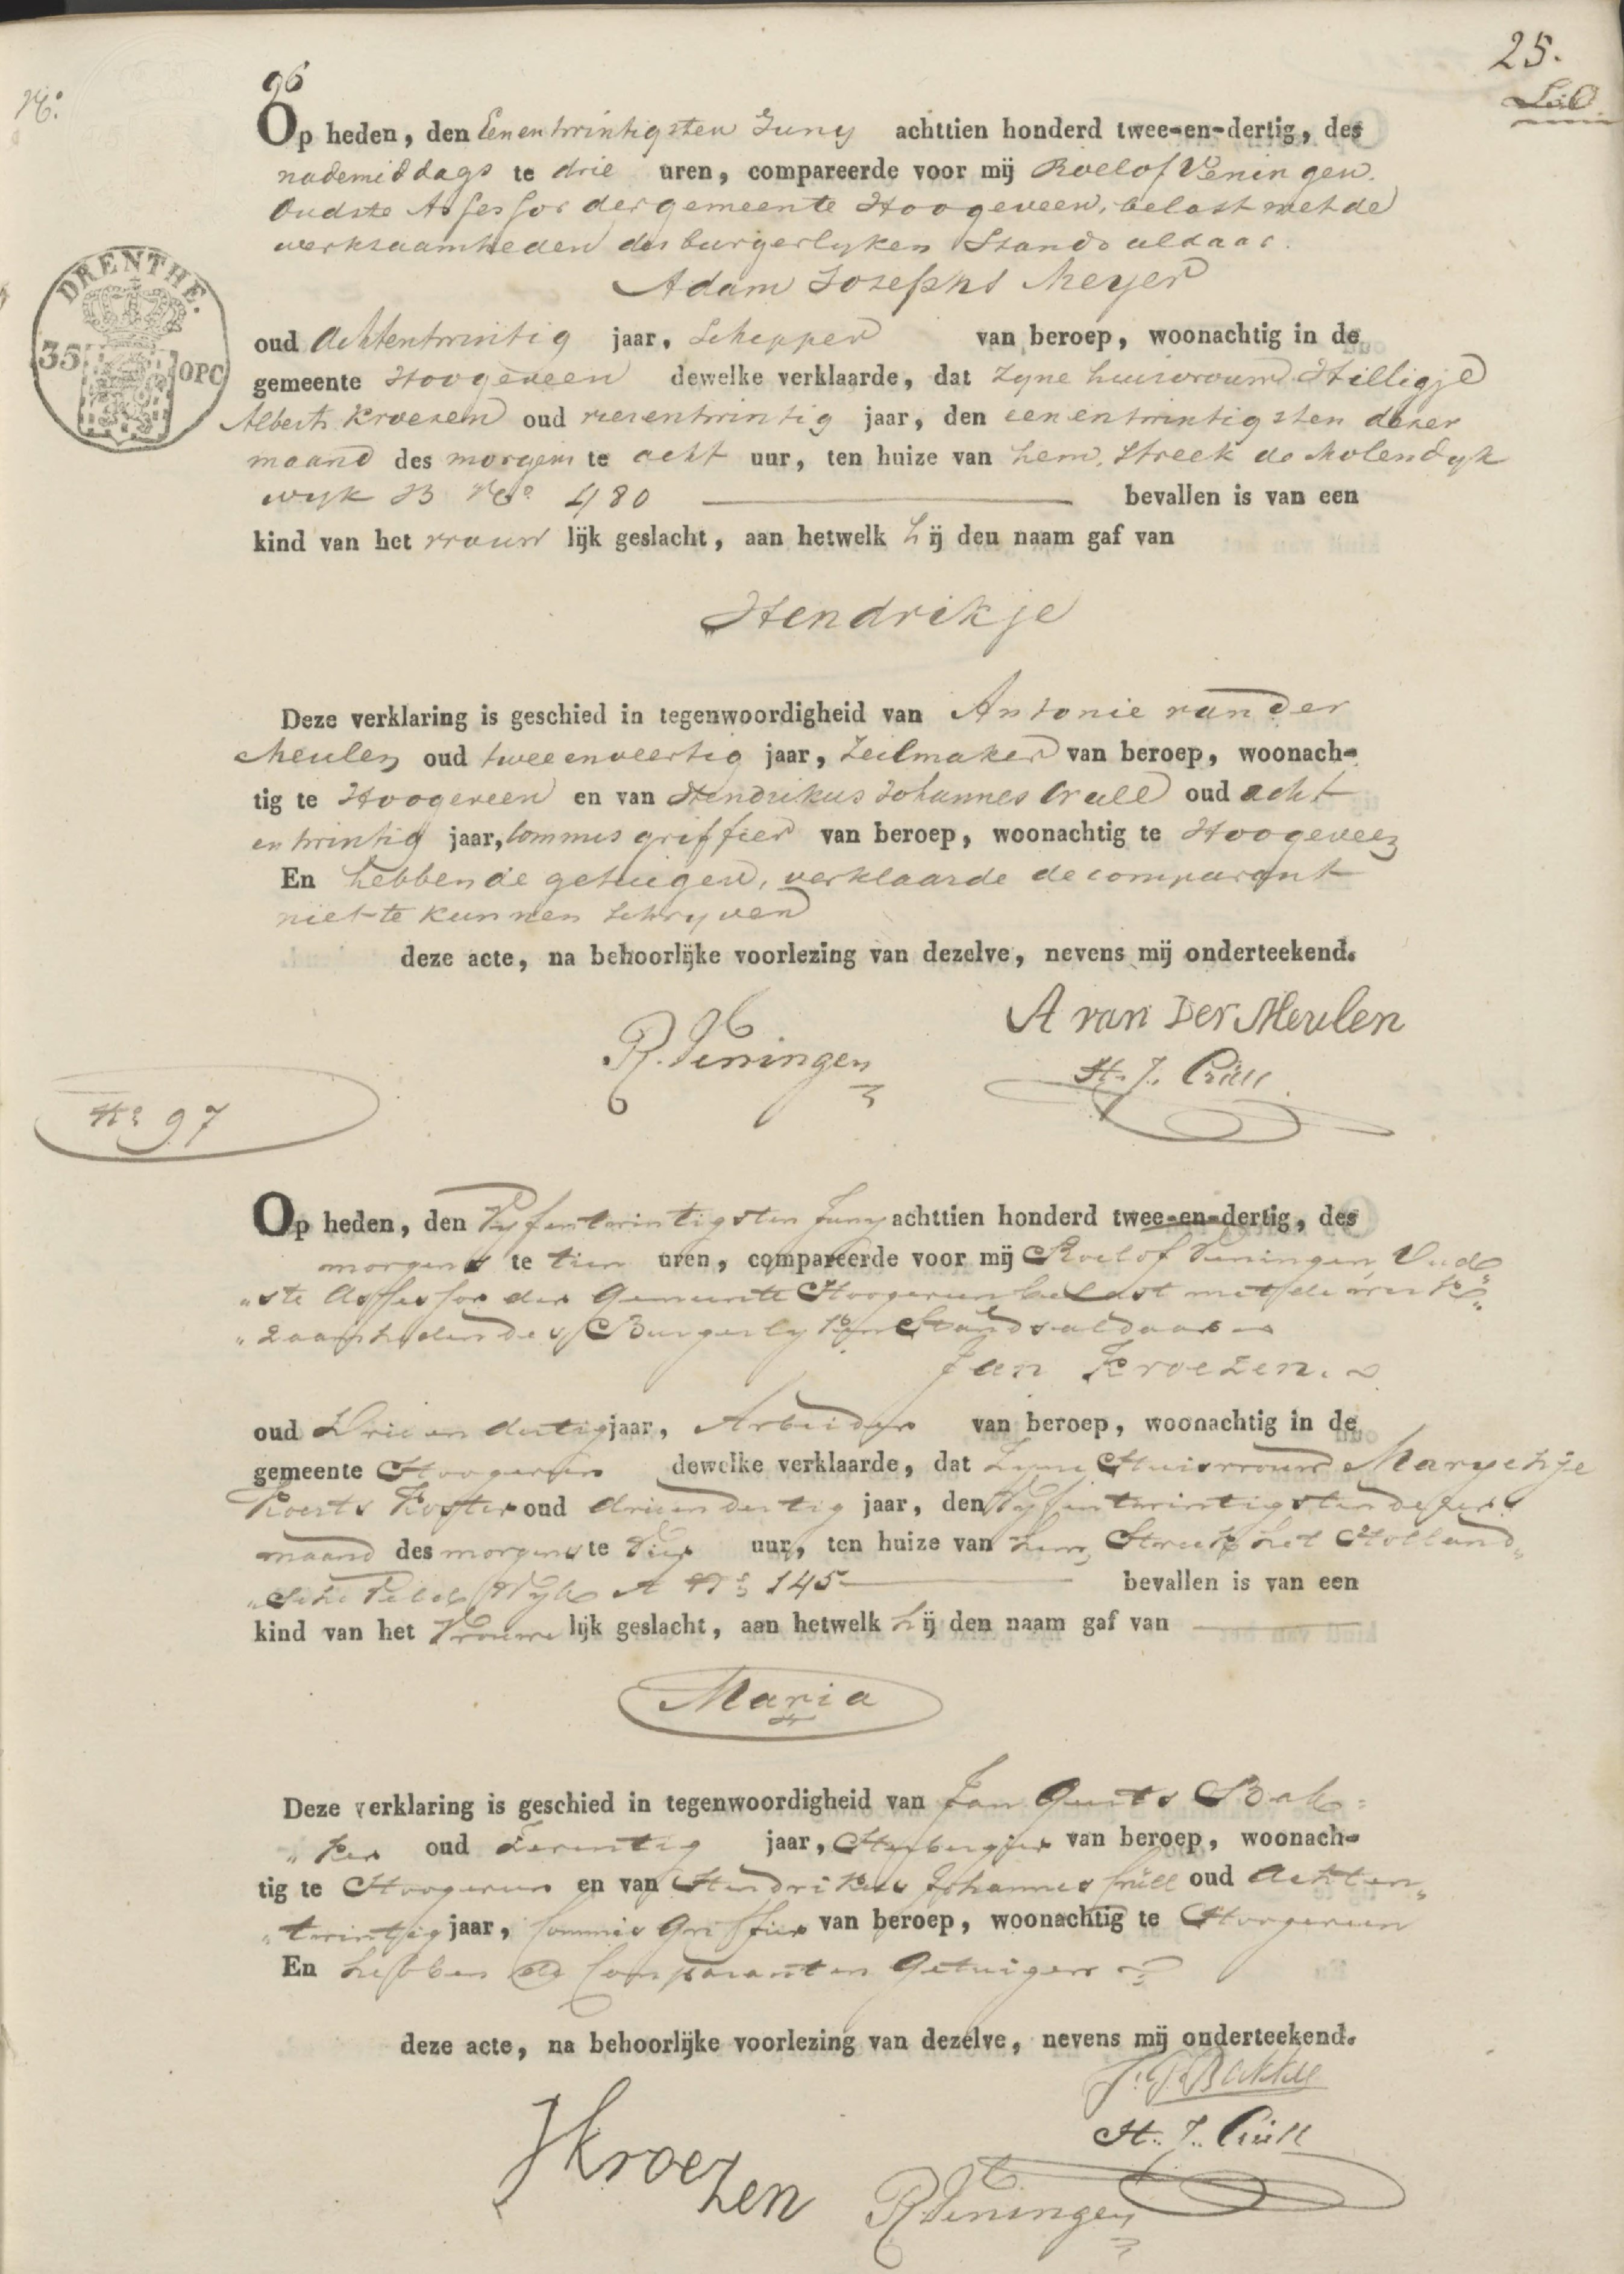 25.
No. 96
Op heden, den Eenentwintigsten Juny achttien honderd twee-en-dertig, des
nademiddags te drie uren, compareerde voor mij Roelof Veningen.
Oudste Assessor der gemeente Hoogeveen, belast met de
werkzaamheden des burgerlyken Stands aldaar.
Adam Josephs Meyer
DRENTHE.
35 OPC
oud Achtentwintig jaar, Schepper van beroep, woonachtig in de
gemeente Hoogeveen dewelke verklaarde, dat zyne huisvrouw Hilligje
Alberts Kroezen oud viesentwintig jaar, den eenentwintigsten dezer
maand des morgens te acht uur, ten huize van hem, Streek de Molendyk
wyk B No. 480 bevallen is van een
kind van het vrouw lijk geslacht, aan hetwelk hij den naam gaf van
Hendrikje
Deze verklaring is geschied in tegenwoordigheid van Antonie van der
Meulen oud tweeenveertig jaar, Zeilmaker van beroep, woonach-
tig te Hoogeveen en van Hendrikus Johannes Crull oud acht
entwintig jaar, Commis griffier van beroep, woonachtig te Hoogeveen
En hebben de getuigen, verklaarde de comparant
niet te kunnen schryven
deze acte, na behoorlijke voorlezing van dezelve, nevens mij onderteekend.
A van Der Meulen
R. Veningen
H. J. Crüll
No 97
Op heden, den Vyfentwintigsten Juny achttien honderd twee-en-dertig, des
morgens te tien uren, compareerde voor mij Roelof Veningen, Oud„
„ste Assessor der Gemeente Hoogeveen belast met de werk„
„zaamheden des Burgerlyken Stands aldaar
Jan Kroezen.
oud Drie en dertig jaar, Arbeider van beroep, woonachtig in de
gemeente Hoogeveen dewelke verklaarde, dat Zyne Huisvrouw Margchje
Koerts Koster oud drieendertig jaar, den Vyfentwintigsten dezer
maand des morgens te Vier uur, ten huize van hem, Streek het Holland„
„sche Veld Wyk A No 145 bevallen is van een
kind van het Vrouwe lijk geslacht, aan hetwelk hij den naam gaf van
Maria
Deze verklaring is geschied in tegenwoordigheid van Jan Geerts Bak-
„ker oud Zeventig jaar, Herbergier van beroep, woonach-
tig te Hoogeveen en van Hendrikus Johannes Crüll oud Achten„
„twintig jaar, Commis Griffier van beroep, woonachtig te Hoogeveen
En hebben de Comparant en Getuigen
deze acte, na behoorlijke voorlezing van dezelve, nevens mij onderteekend.
J. G. Bakker
H. J. Crüll
J Kroezen
R. Veningen